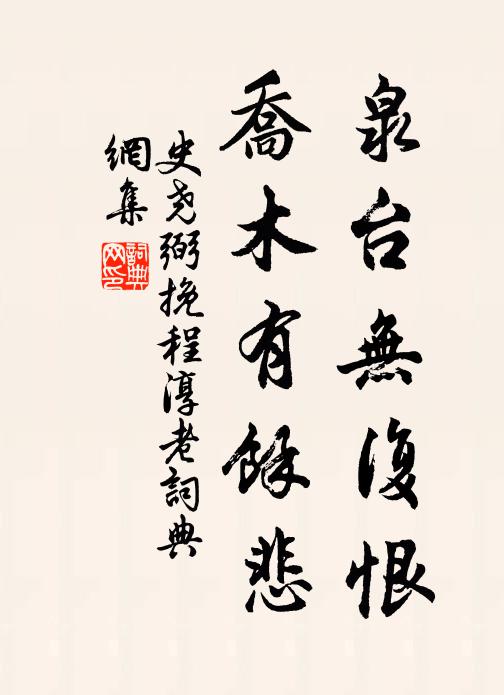 泉台無復恨
喬木有餘悲
史尧弼挽程淳老詞典
網集
詞典网印